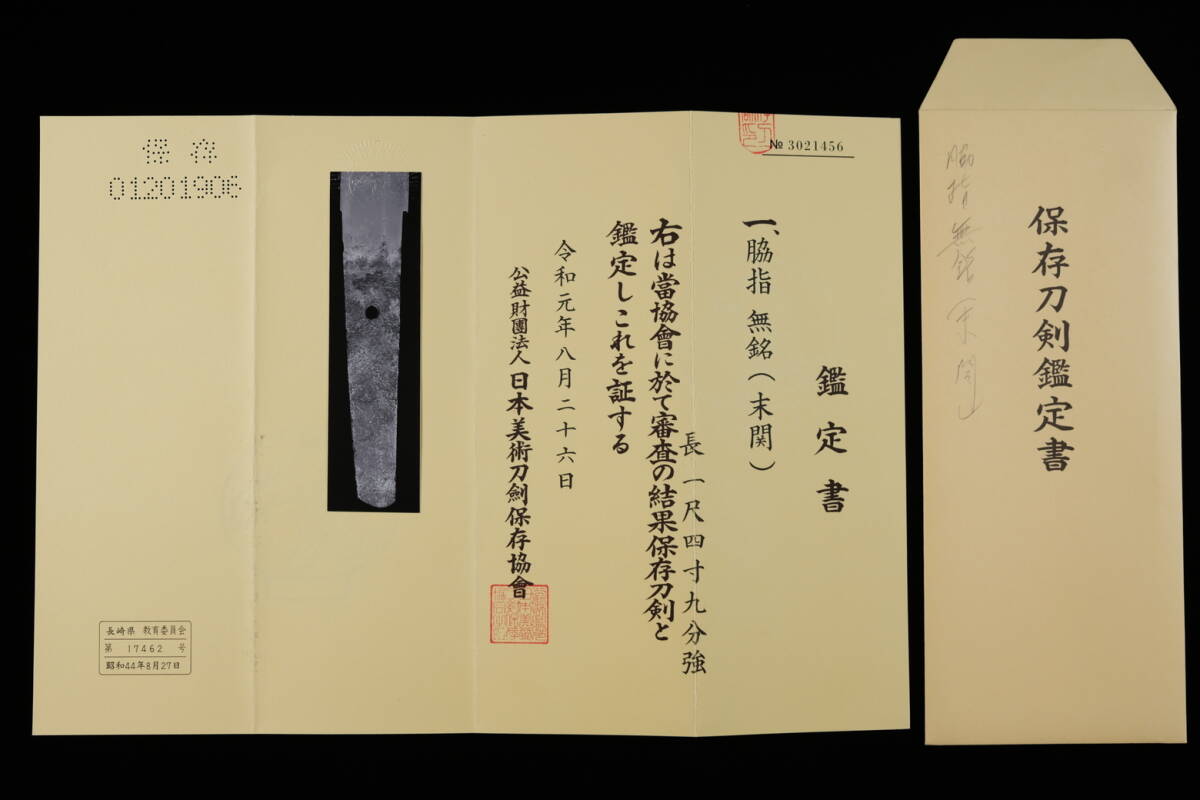 № 3021456
鑑定書
一、脇指 無銘（末関）
長 一尺四寸九分強
右は當協會に於て審査の結果保存刀剣と
鑑定しこれを証する
令和元年八月二十六日
公益財團法人 日本美術刀劍保存協會
保存
01201906
長崎県 教育委員会
第 17462 号
昭和44年8月27日
保存刀剣鑑定書
脇指 無銘（末関）